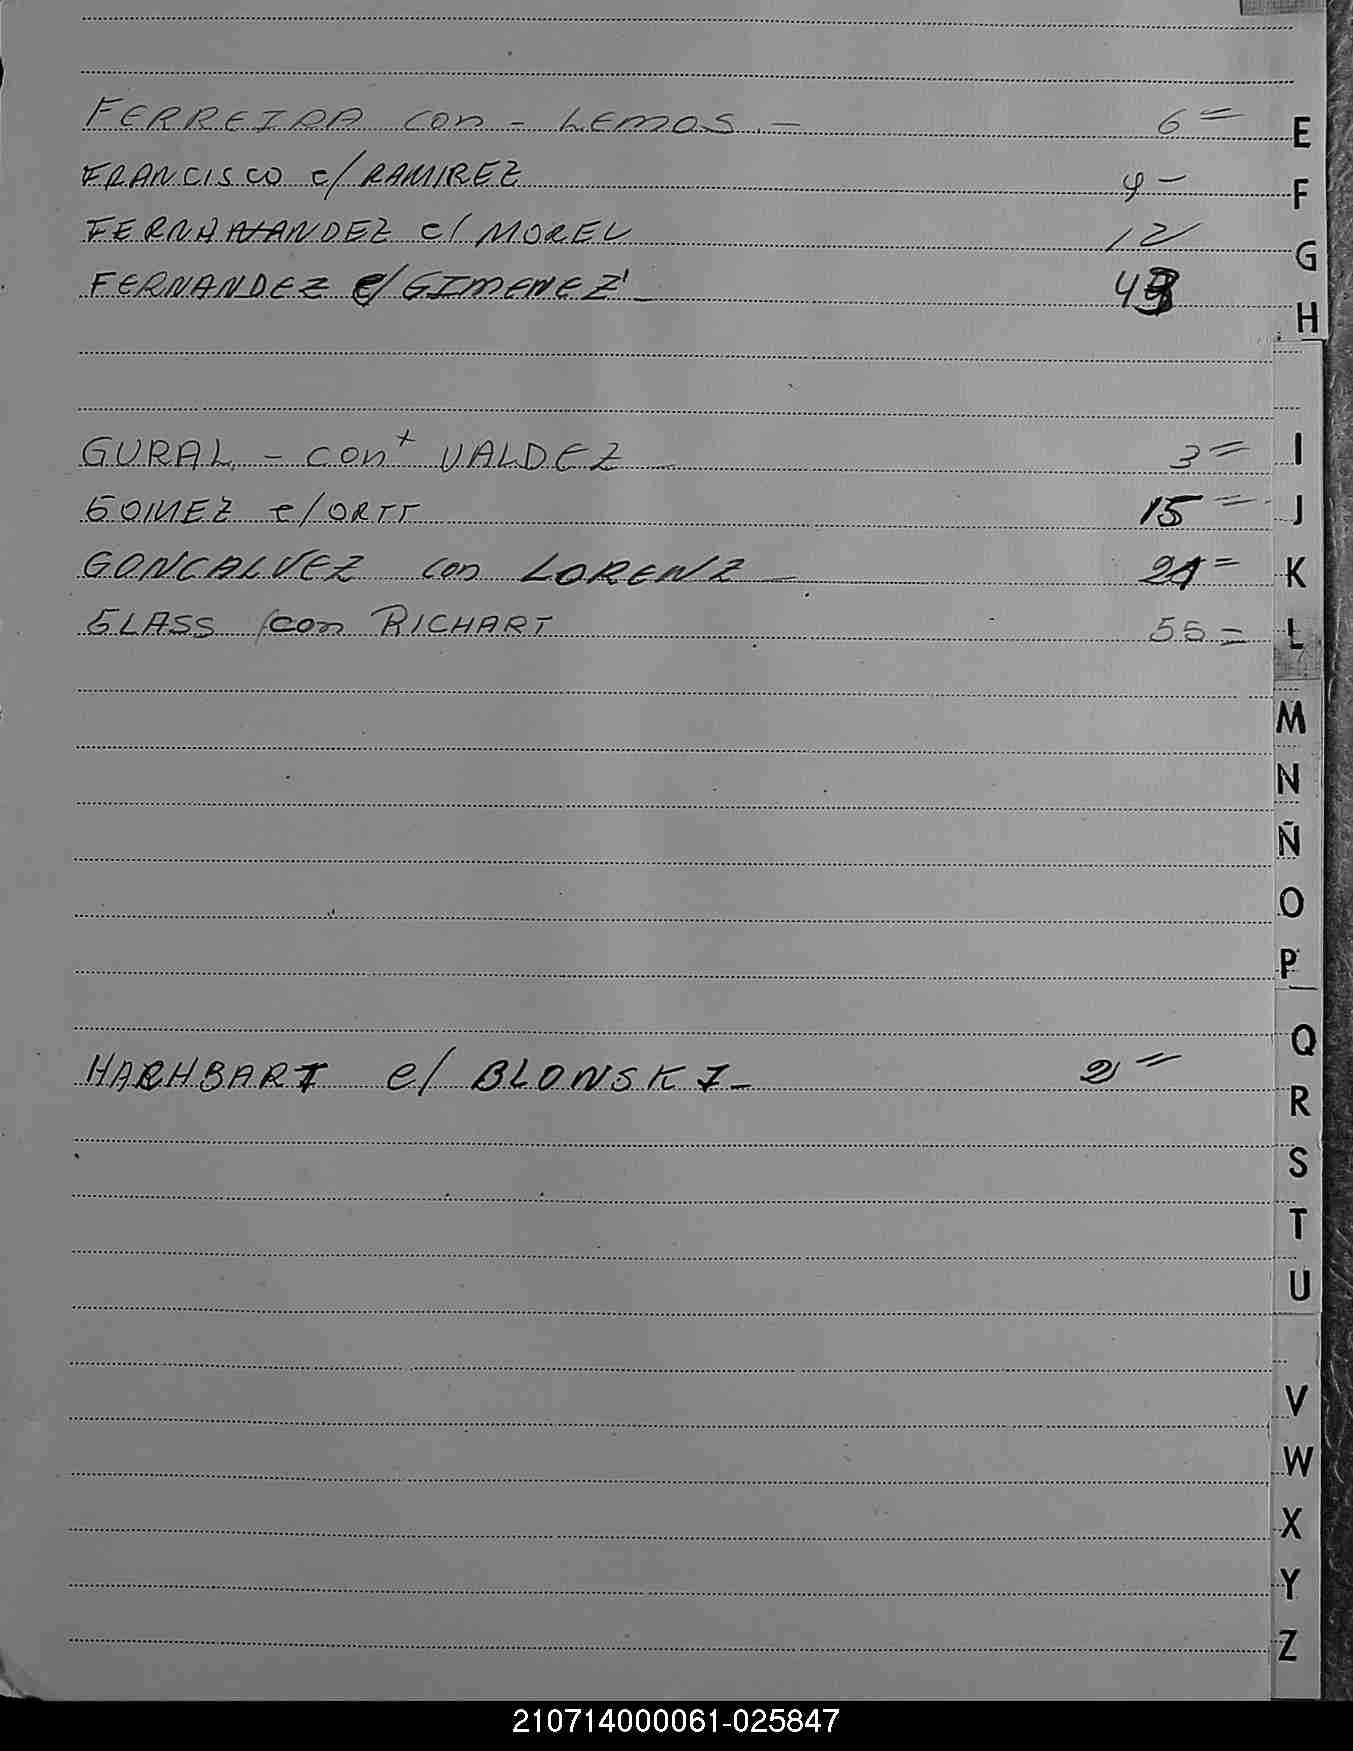 FERREIRA con - LEMOS. - 6 =
E
FRANCISCO c/ RAMIREZ 4 -
F
FERNANDEZ c/ MOREL 12
G
FERNANDEZ c/ GIMENEZ -
H
GURAL - con VALDEZ - 3 =
I
GOMEZ c/ ORTT 15 =
J
GONCALVEZ con LORENZ - 21 =
K
GLASS con RICHART 55 =
L
M
N
Ñ
O
P
Q
HARHBART c/ BLONSKI - 2 =
R
S
T
U
V
W
X
Y
Z
210714000061-025847